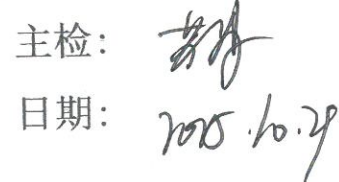 主检:
日期: 2025.10.29